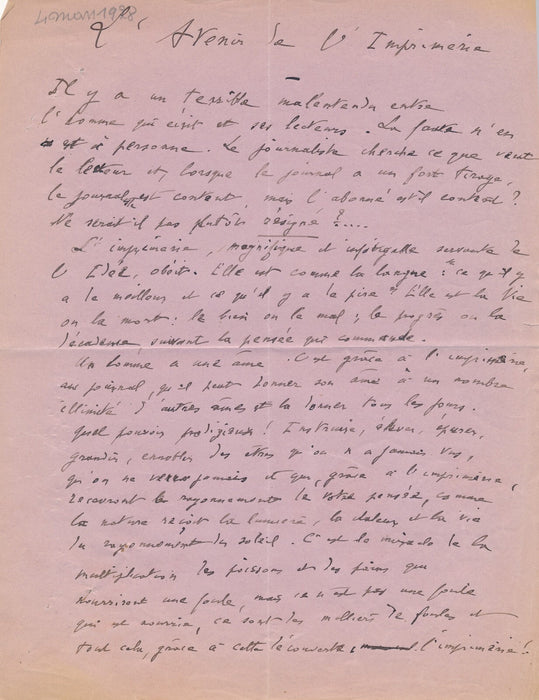 4 mars 1928
L'Avenir de l'Imprimerie
Il y a un terrible malentendu entre
l'homme qui écrit et ses lecteurs. La faute n'en
est à personne. Le journaliste cherche ce que veut
le lecteur et, lorsque le journal a un fort tirage,
le journaliste est content, mais l'abonné est-il content?
Ne serait-il pas plutôt résigné?....
L'imprimerie, magnifique et infatigable servante de
l'Idée, obéit. Elle est comme la langue : "ce qu'il y
a de meilleur et ce qu'il y a de pire". Elle est la vie
ou la mort ; le bien ou le mal ; le progrès ou la
décadence, suivant la pensée qui commande.
Un homme a une âme. C'est grâce à l'imprimerie,
au journal, qu'il peut donner son âme à un nombre
illimité d'autres âmes et la donner tous les jours.
Quel pouvoir prodigieux! Instruire, élever, épurer,
grandir, ennoblir des êtres qu'on n'a jamais vus,
qu'on ne verra jamais et qui, grâce à l'imprimerie,
recevront le rayonnement de votre pensée, comme
la nature reçoit la lumière, la chaleur et la vie
du rayonnement du soleil. C'est le miracle de la
multiplication des poissons et des pains qui
nourriront une foule, mais ce n'est pas une foule
qui est nourrie, ce sont des milliers de foules et
tout cela, grâce à cette découverte, l'imprimerie!